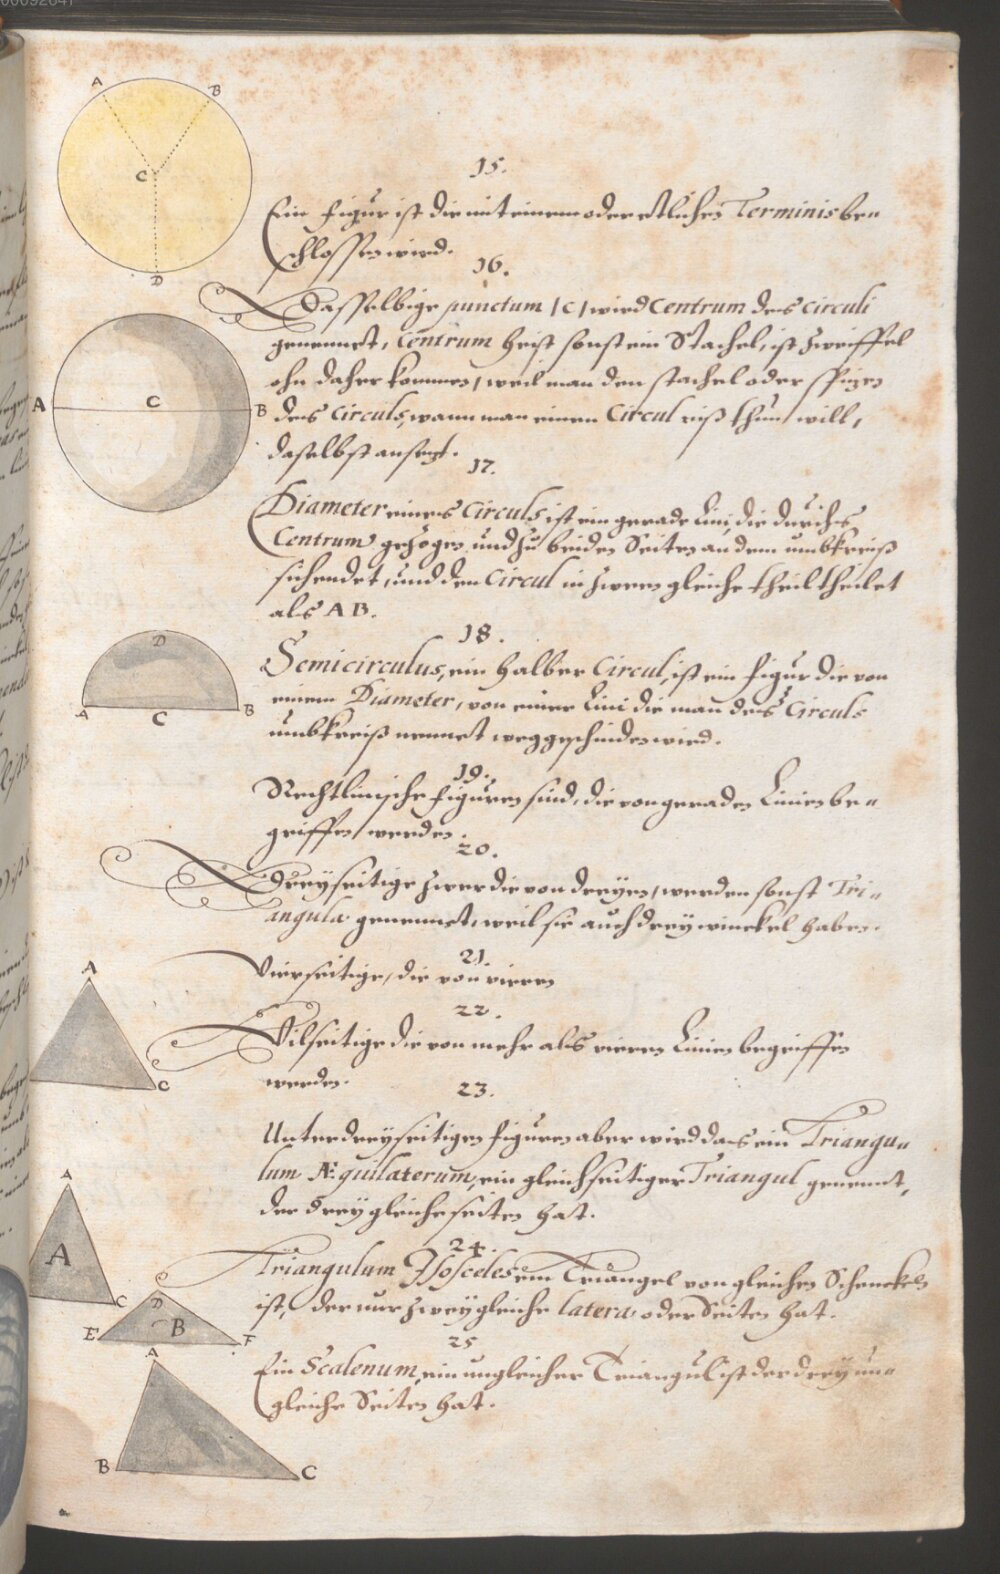 15.
Ein figur ist die mit einem oder etlichen Terminis be=
schlossen wird.
16.
Dasselbige punctum /C/ wird Centrum des circuli
genennet, Centrum heist sonst ein Stachel, ist zweiffel
ohn daher kommen, weil man den stachel oder spizen
des Circuls, wann man einen Circul riß thun will,
daselbst ansezt.
17.
Diameter eines Circuls ist ein gerade Lini, die durchs
Centrum gezogen, und zu beiden Seiten an dem umbkreiß
sich endet, und den Circul in zween gleiche theil theilet
als AB.
18.
Semicirculus, ein halber Circul, ist ein figur die von
einem Diameter, von einer Lini die man des Circuls
umbkreiß nennet weggeschinden wird.
19.
Rechtlinische figuren sind, die von geraden Linien be=
griffen werden.
20.
Dreyseitige zwar die von dreyen, werden sonst Tri=
angula genennet, weil sie auch drey winckel haben.
21.
Vierseitige, die von vieren
22.
Vilseitige die von mehr als vieren Linien begriffen
werden.
23.
Unter dreyseitigen figuren aber wird das ein Triangu=
lum Æquilaterum, ein gleichseitiger Triangul genennt,
der drey gleiche seiten hat.
24.
Triangulum Isosceles ein Triangel von gleichen Schenckeln
ist, der nur zwey gleiche latera oder Seiten hat.
25
Ein Scalenum, ein ungleicher Triangul ist der drey un=
gleiche Seiten hat.
A
B
C
D
A
C
B
D
A
C
B
A
C
A
A
C
D
E
B
F
A
B
C